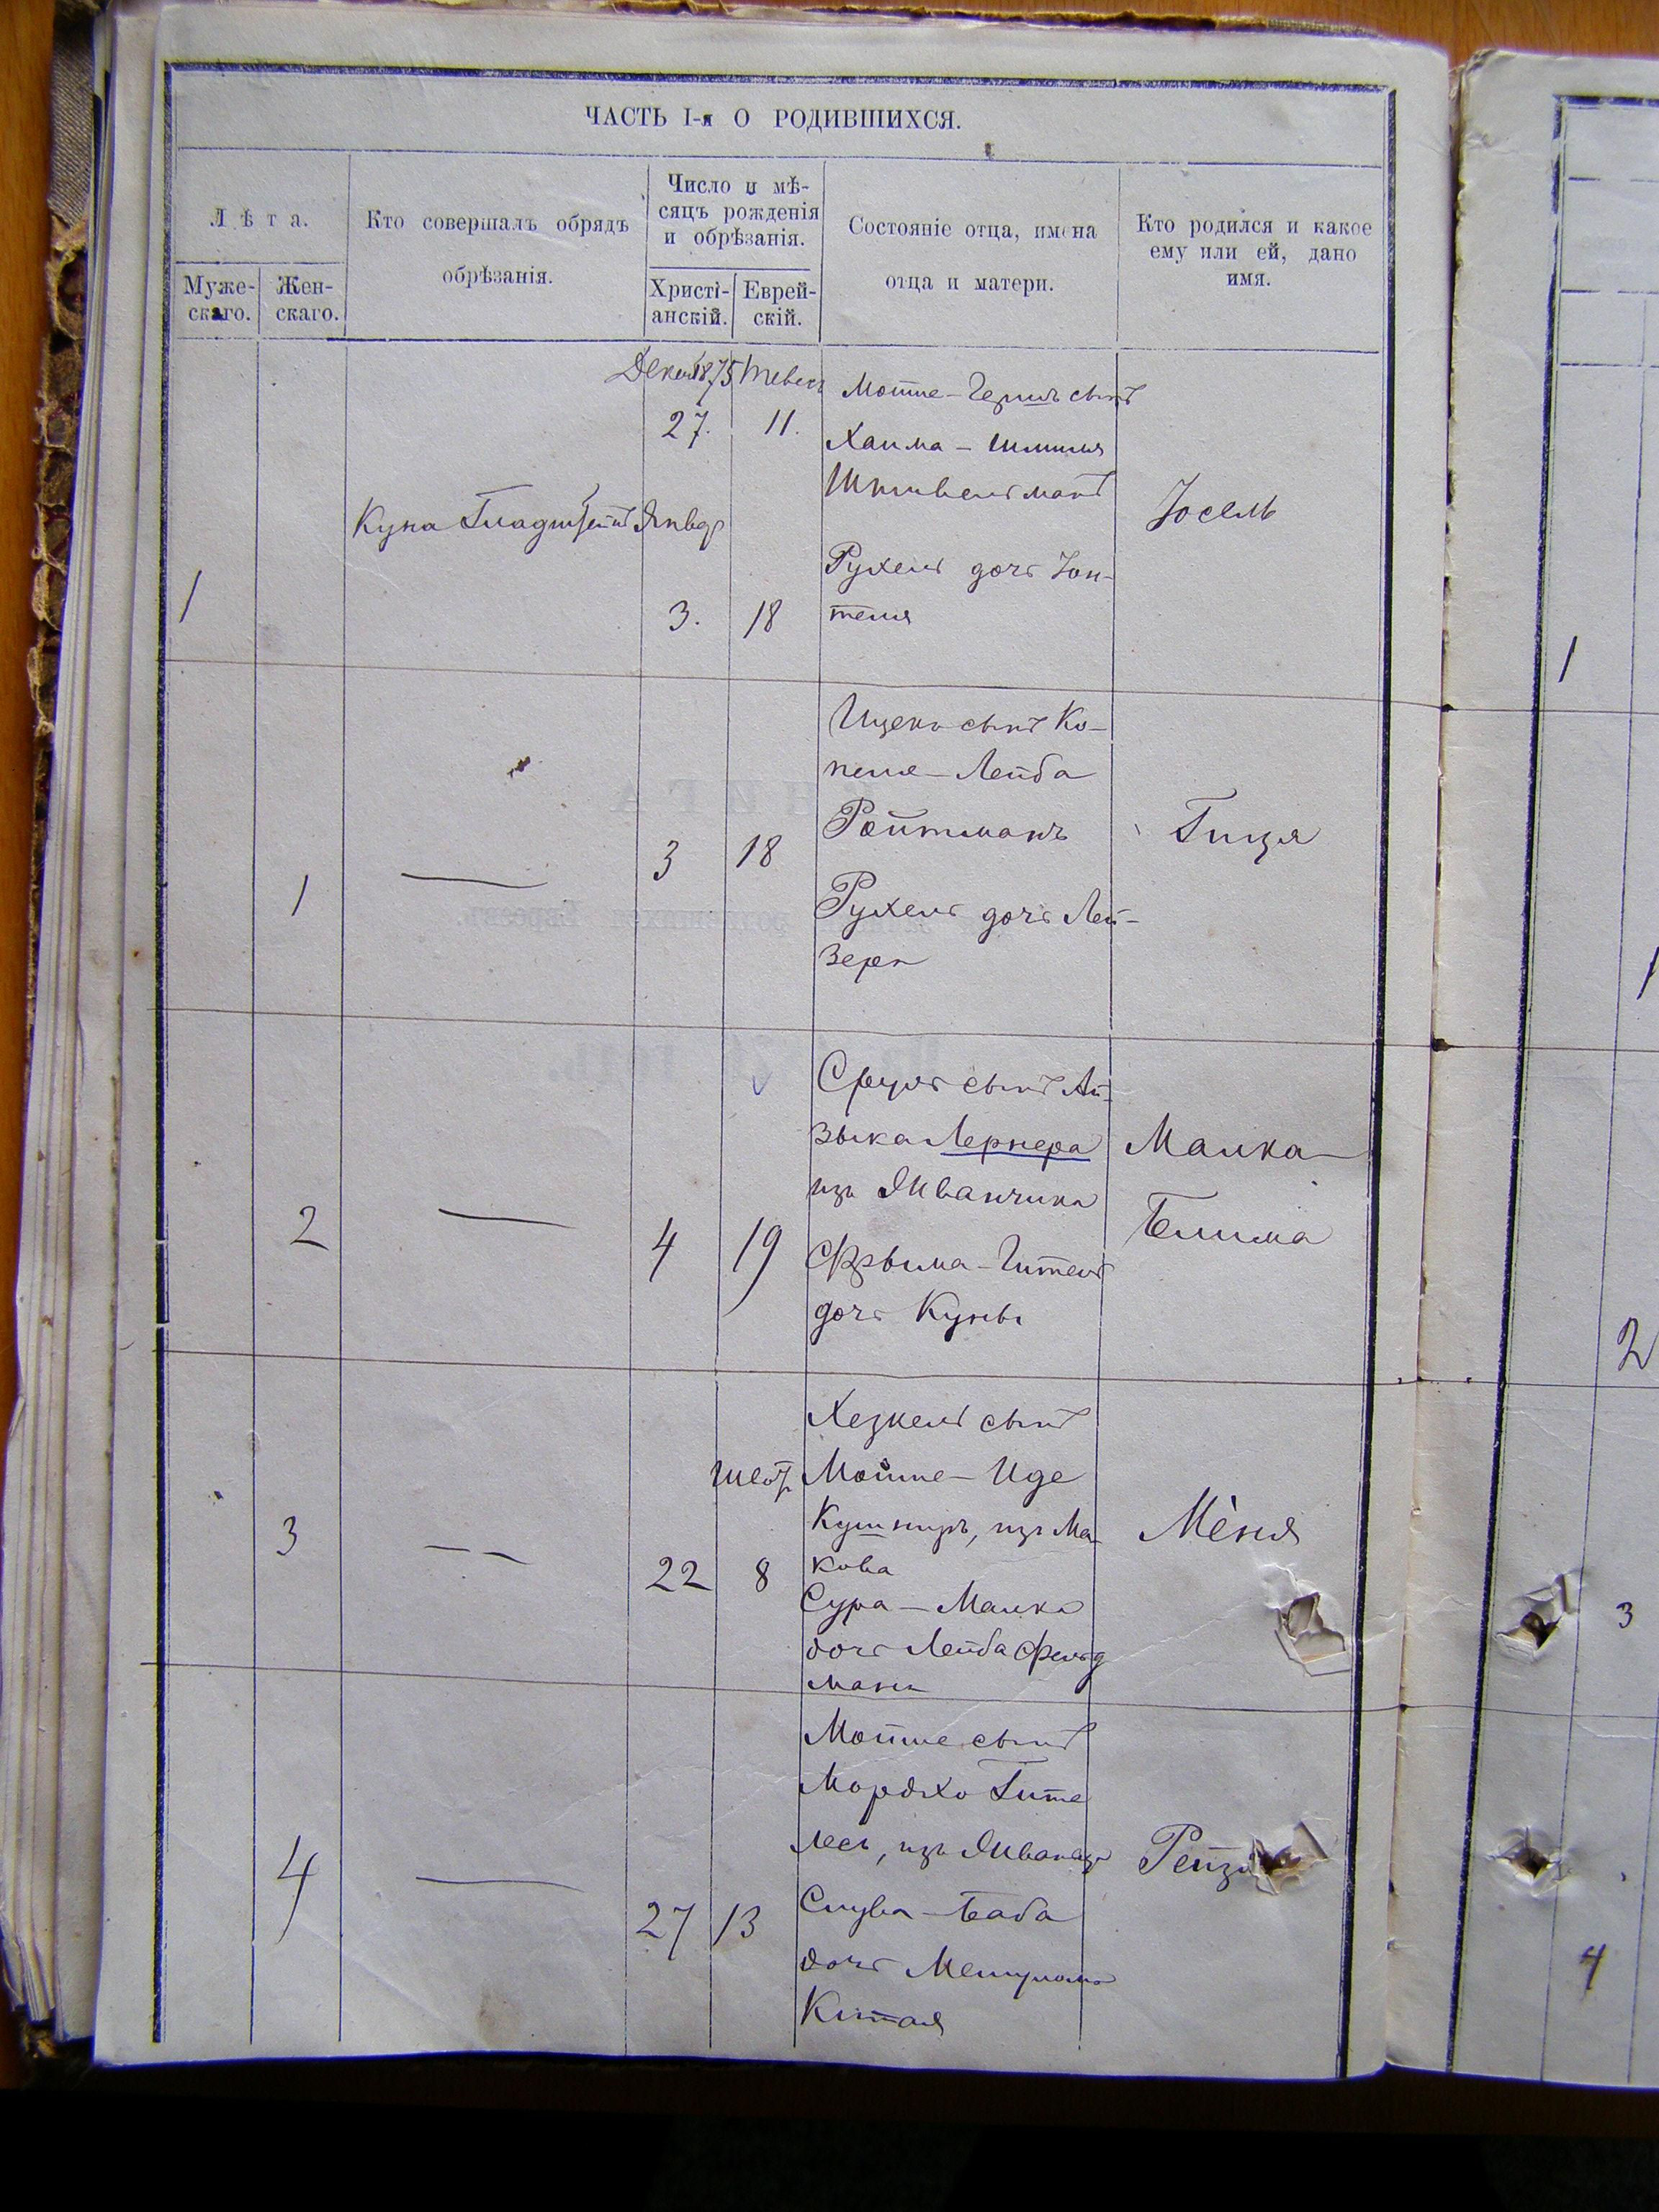 ЧАСТЬ I-я О РОДИВШИХСЯ.
Лѣта.
Муже-
скаго.
Жен-
скаго.
Кто совершалъ обрядъ
обрѣзанія.
Число и мѣ-
сяцъ рожденія
и обрѣзанія.
Христі-
анскій.
Еврей-
скій.
Состояніе отца, имена
отца и матери.
Кто родился и какое
ему или ей, дано
имя.
1
Куна
Январ
1875
27. 11.
3. 18
Мошко-Герш сынъ
Хаима-Шмиля
Рухель дочь Іон-
теля
Іосель
1
—
3 18
Ицекъ сынъ Ко-
пеля-Лейба
Ройтманъ
Рухель дочь Лей-
зера
Гиця
2
—
4 19
Сруль сынъ Ай-
зыка Лернера
изъ Иванчика
Фрыма-Гитель
дочь Куны
Малка
Блима
3
— —
22 8
Хезкель сынъ
Мошко-Иде
Кушниръ, изъ Ма-
кова
Сура-Малка
дочь Лейба Фельд
мана
Меня
4
—
27 13
Мошко сынъ
Мордхо Гите
лесъ, изъ
Слува-Баба
дочь Мешулома
Китая
1
1
2
3
4